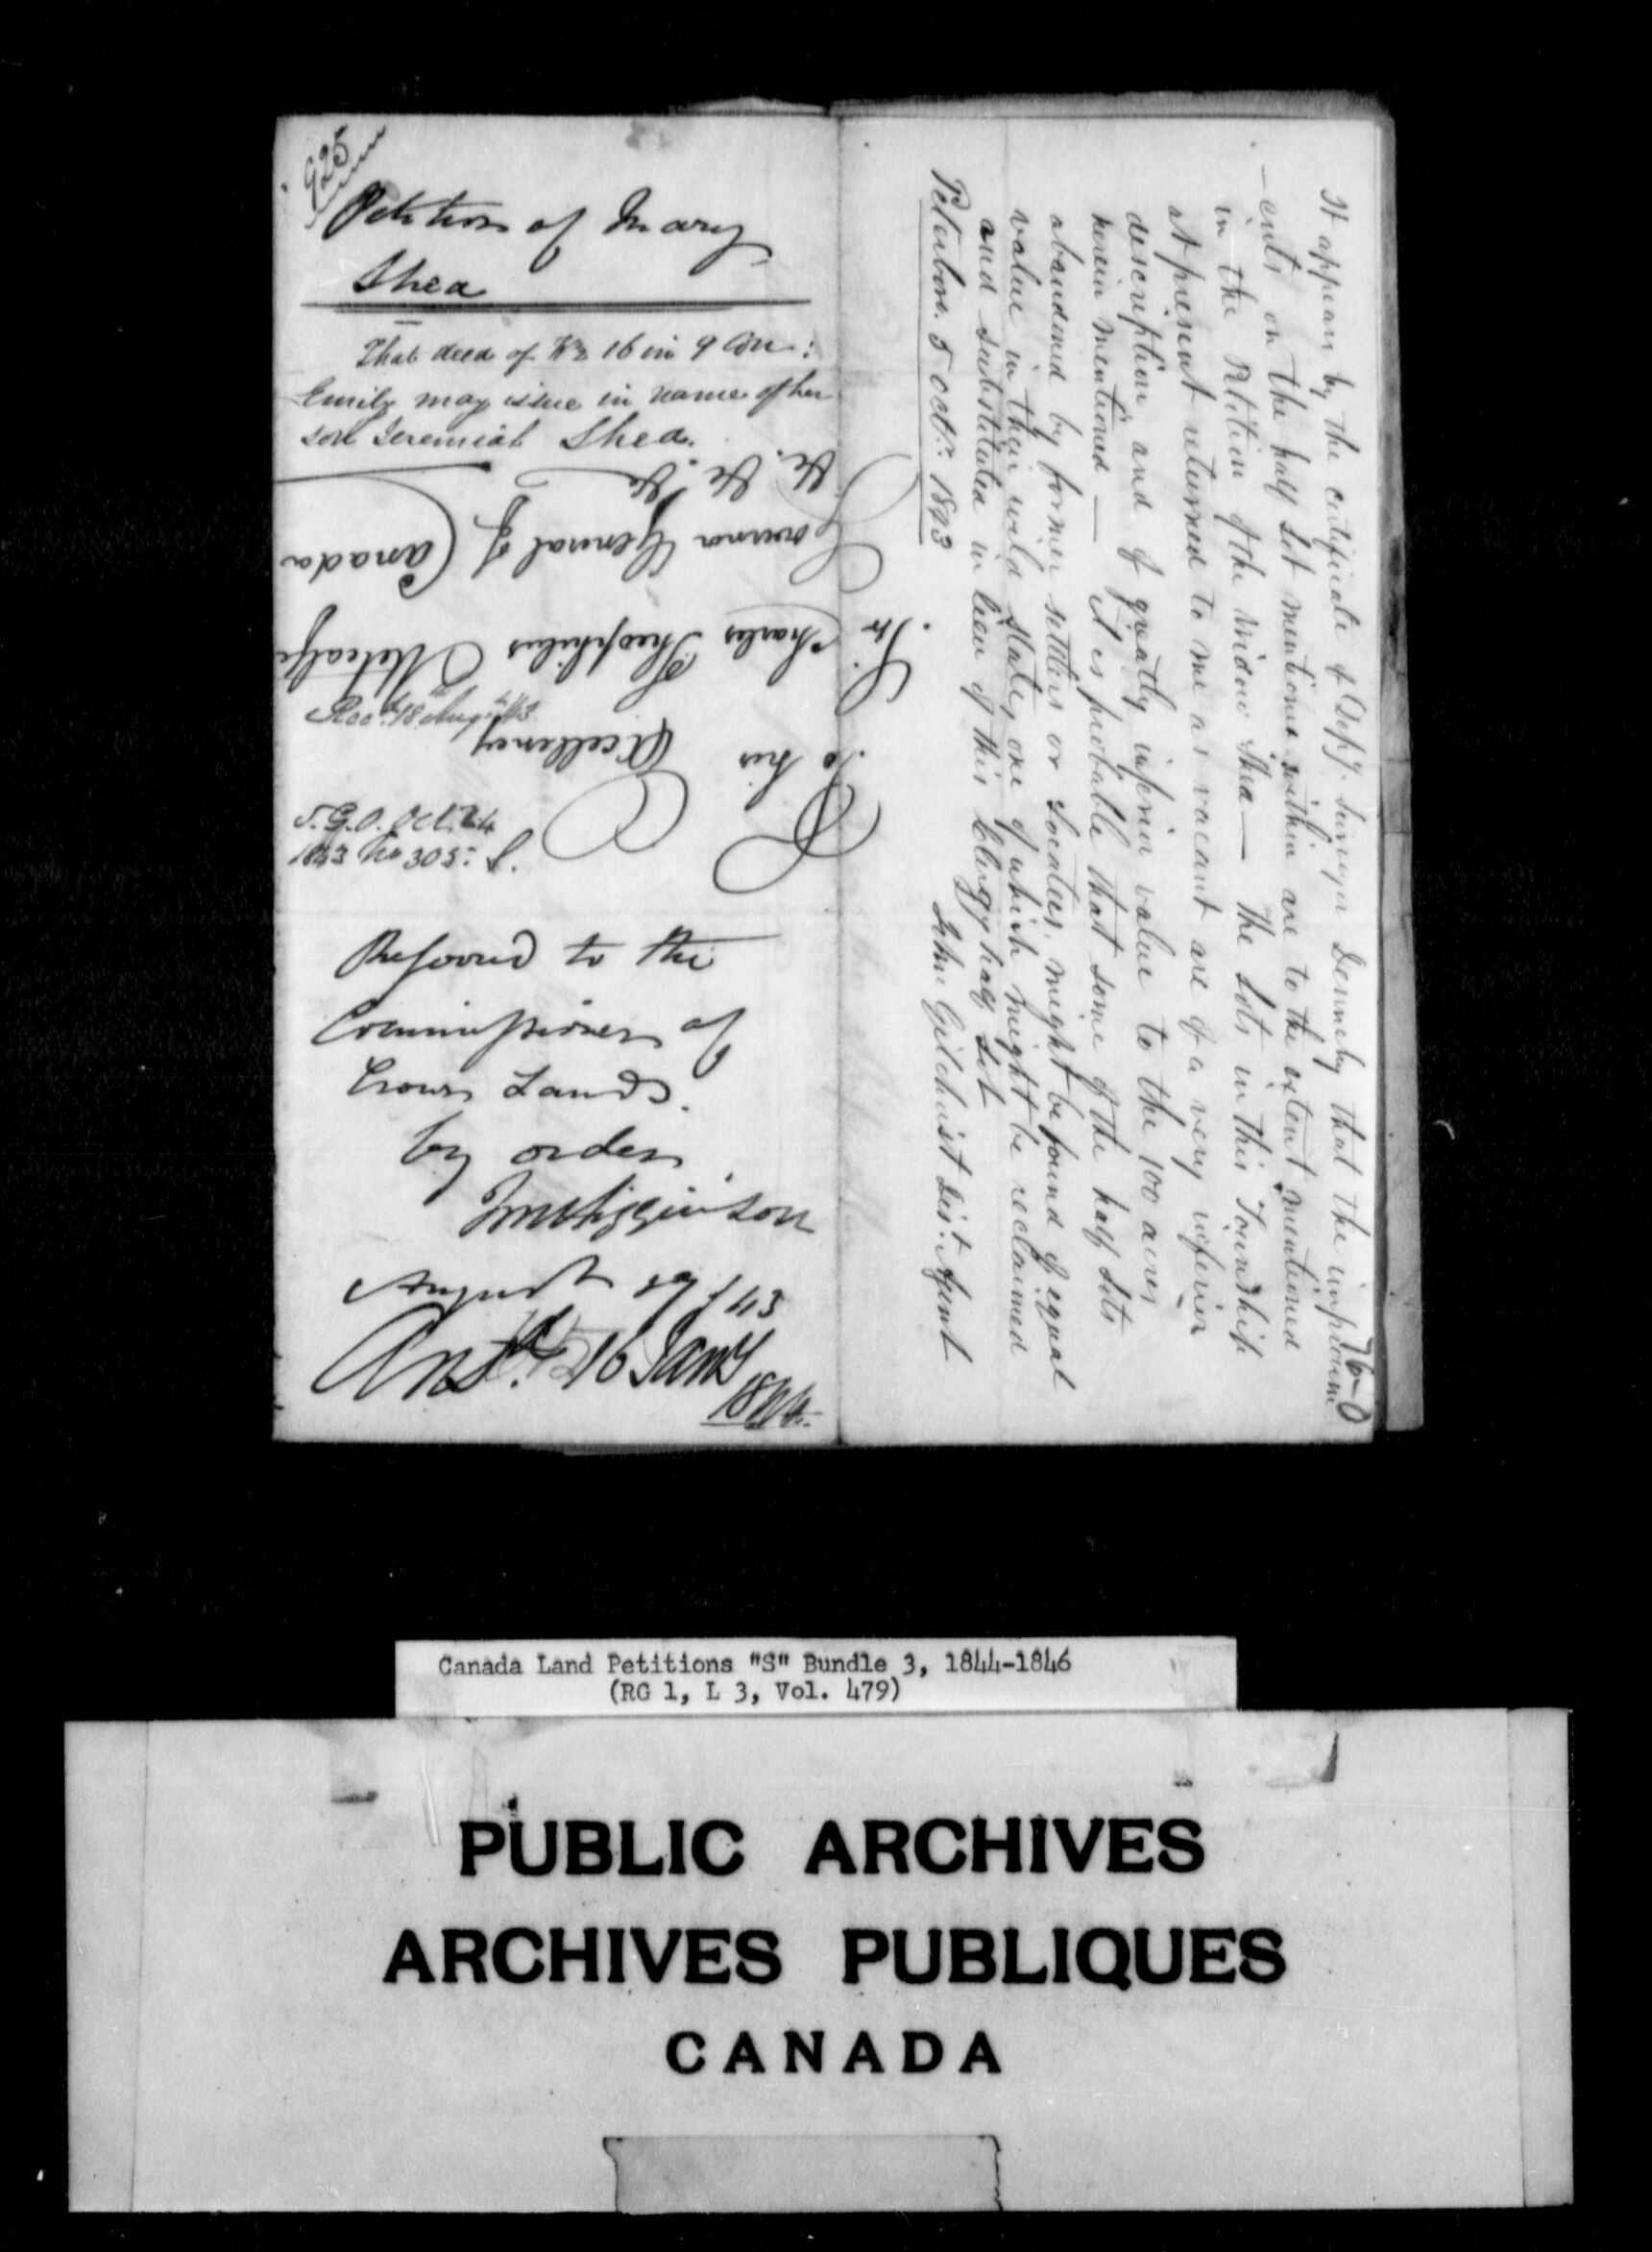 925
Petition of Mary
Shea
That deed of No 16 in 9 Con:
Emily may issue in name of her
son Jeremiah Shea.
To his
Excellency
Sir Charles Theophilus Metcalfe
Governor General of Canada
&c. &c. &c
Recd. 18 Augt 43
S.G.O. Oct. 24
1843 No 305. S.
Referred to the
Commissioner of
Crown Lands.
by order
JM Higginson
August 19 / 43
Ansd. 26 Jany
1844.
76-0
It appears by the certificate of Depy. Surveyor Dennehy that the improvem
-ents on the half Lot mentioned within are to the extent mentioned
in the Petition of the Widow Shea — The Lots in this Township
at present returned to me as vacant are of a very inferior
description and of greatly inferior value to the 100 acres
herein mentioned — It is probable that some of the half Lots
abandoned by former settlers or Locatees, might be found of equal
value in their wild state, one of which might be reclaimed
and substituted in lieu of this Clergy half Lot
Peterboro. 5 Octr. 1843
John Gilchrist Dist. Agent
Canada Land Petitions "S" Bundle 3, 1844-1846
(RG 1, L 3, Vol. 479)
PUBLIC ARCHIVES
ARCHIVES PUBLIQUES
CANADA